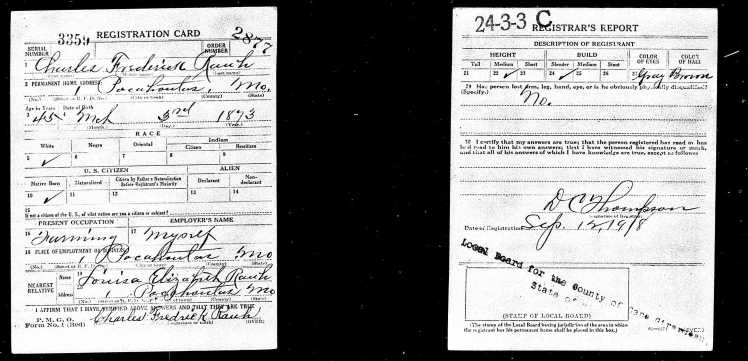 REGISTRATION CARD
SERIAL NUMBER 3359 ORDER NUMBER 2877
1 Charles Fredrick Rauh
(First name) (Middle name) (Last name)
2 PERMANENT HOME ADDRESS
Pocahontas, Mo.
(No.) (Street or R. F. D. No.) (City or town) (County) (State)
Age in Years Date of Birth
3 45 4 Mch 3rd 1873
(Month.) (Day.) (Year.)
RACE
White Negro Oriental Indian
Citizen Noncitizen
5 ✓ 6 7 8 9
U. S. CITIZEN ALIEN
Native Born Naturalized Citizen by Father's Naturalization Before Registrant's Majority Declarant Non-declarant
10 ✓ 11 12 13 14
15
If not a citizen of the U. S., of what nation are you a citizen or subject?
PRESENT OCCUPATION EMPLOYER'S NAME
16 Farming 17 Myself
18 PLACE OF EMPLOYMENT OR BUSINESS
Pocahontas Mo
(No.) (Street or R. F. D. No.) (City or town) (County) (State)
NEAREST RELATIVE
Name 19 Louisa Elizabeth Rauh
Address 20 Pocahontas Mo
(No.) (Street or R. F. D. No.) (City or town) (County) (State)
I AFFIRM THAT I HAVE VERIFIED ABOVE ANSWERS AND THAT THEY ARE TRUE
P. M. G. O.
Form No. 1 (Red) Charles Fredrick Rauh
(OVER)
24-3-3 C
REGISTRAR'S REPORT
DESCRIPTION OF REGISTRANT
HEIGHT BUILD COLOR OF EYES COLOR OF HAIR
Tall Medium Short Slender Medium Stout
21 22 ✓ 23 24 25 ✓ 26 27 Gray 28 Brown
29 Has person lost arm, leg, hand, eye, or is he obviously physically disqualified?
(Specify.)
No.
30 I certify that my answers are true; that the person registered has read or has
had read to him his own answers; that I have witnessed his signature or mark,
and that all of his answers of which I have knowledge are true, except as follows:
D C Thompson
(Signature of Registrar)
Date of Registration Sep. 12, 1918
Local Board for the County of Cape Girardeau
State of
(STAMP OF LOCAL BOARD)
(The stamp of the Local Board having jurisdiction of the area in which
the registrant has his permanent home shall be placed in this box.)
(OVER)